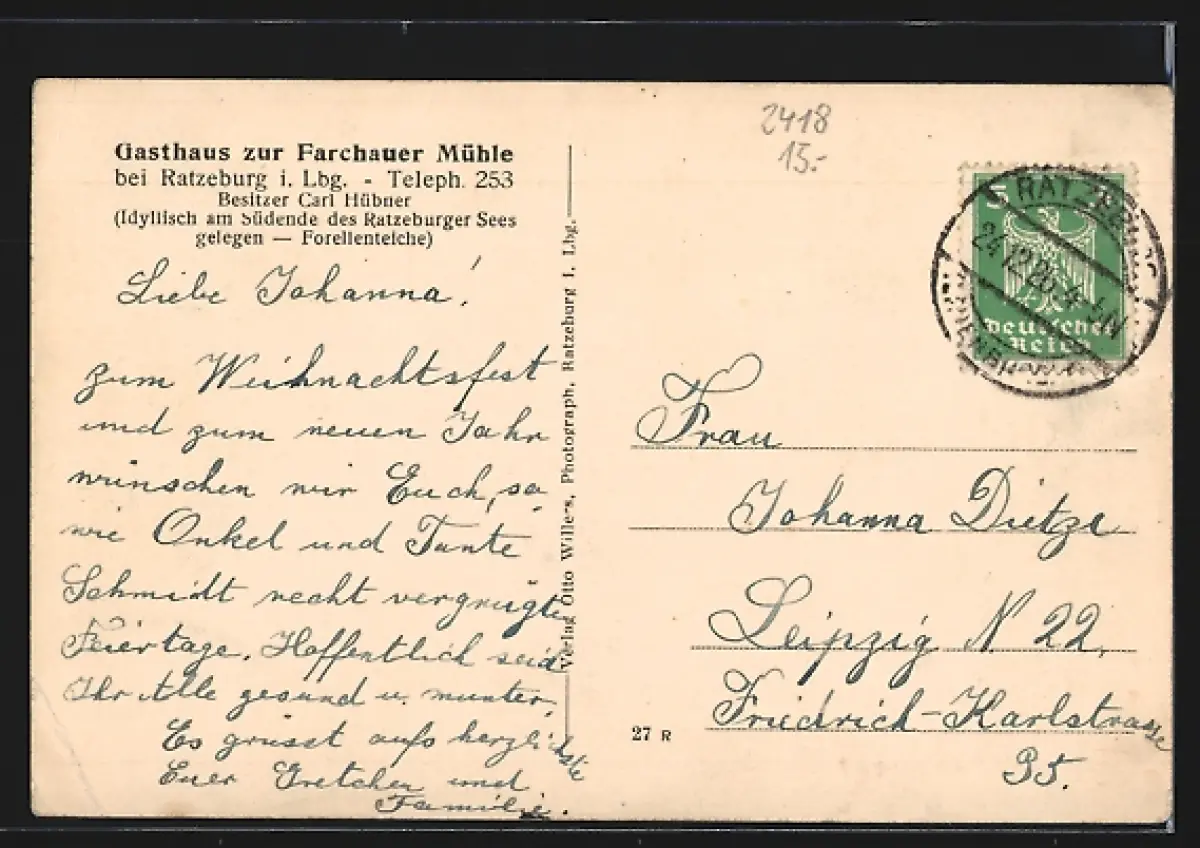 Gasthaus zur Farchauer Mühle
bei Ratzeburg i. Lbg. - Teleph. 253
Besitzer Carl Hübner
(Idyllisch am Südende des Ratzeburger Sees
gelegen — Forellenteiche)
Liebe Johanna!
zum Weihnachtsfest
und zum neuen Jahr
wünschen wir Euch, so
wie Onkel und Tante
Schmidt recht vergnügte
Feiertage. Hoffentlich seid
Ihr Alle gesund u. munter.
Es grüsst aufs herzlichste
Euer Gretchen und
Familie.
Verlag Otto Willers, Photograph, Ratzeburg i. Lbg.
2418
15.-
5
Deutsches
Reich
RATZEBURG
24.12.26.4-5N
Frau
Johanna Dietze
Leipzig N 22.
Friedrich-Karlstrasse
35.
27 R